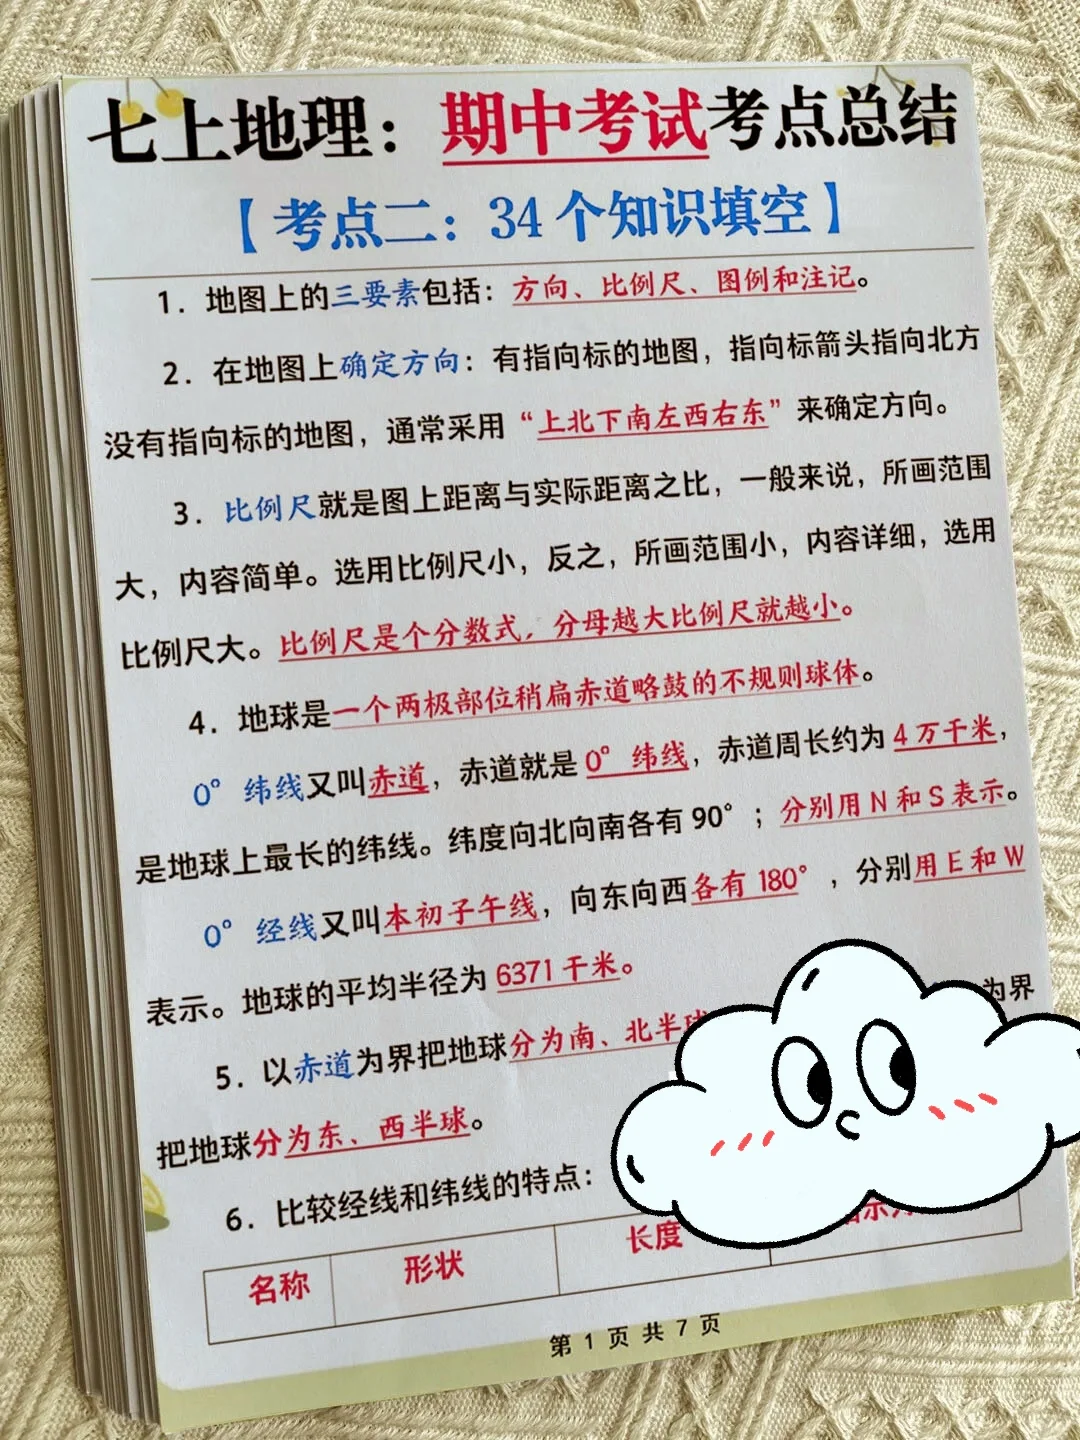 七上地理：期中考试考点总结
【考点二：34个知识填空】
1. 地图上的三要素包括：方向、比例尺、图例和注记。
2. 在地图上确定方向：有指向标的地图，指向标箭头指向北方
没有指向标的地图，通常采用“上北下南左西右东”来确定方向。
3. 比例尺就是图上距离与实际距离之比，一般来说，所画范围
大，内容简单。选用比例尺小，反之，所画范围小，内容详细，选用
比例尺大。比例尺是个分数式，分母越大比例尺就越小。
4. 地球是一个两极部位稍扁赤道略鼓的不规则球体。
0° 纬线又叫赤道，赤道就是 0° 纬线，赤道周长约为 4万千米，
是地球上最长的纬线。纬度向北向南各有 90°；分别用 N 和 S 表示。
0° 经线又叫本初子午线，向东向西各有 180°，分别用 E 和 W
表示。地球的平均半径为 6371 千米。
5. 以赤道为界把地球分为南、北半球 为界
把地球分为东、西半球。
6. 比较经线和纬线的特点：
名称 形状 长度
第 1 页 共 7 页